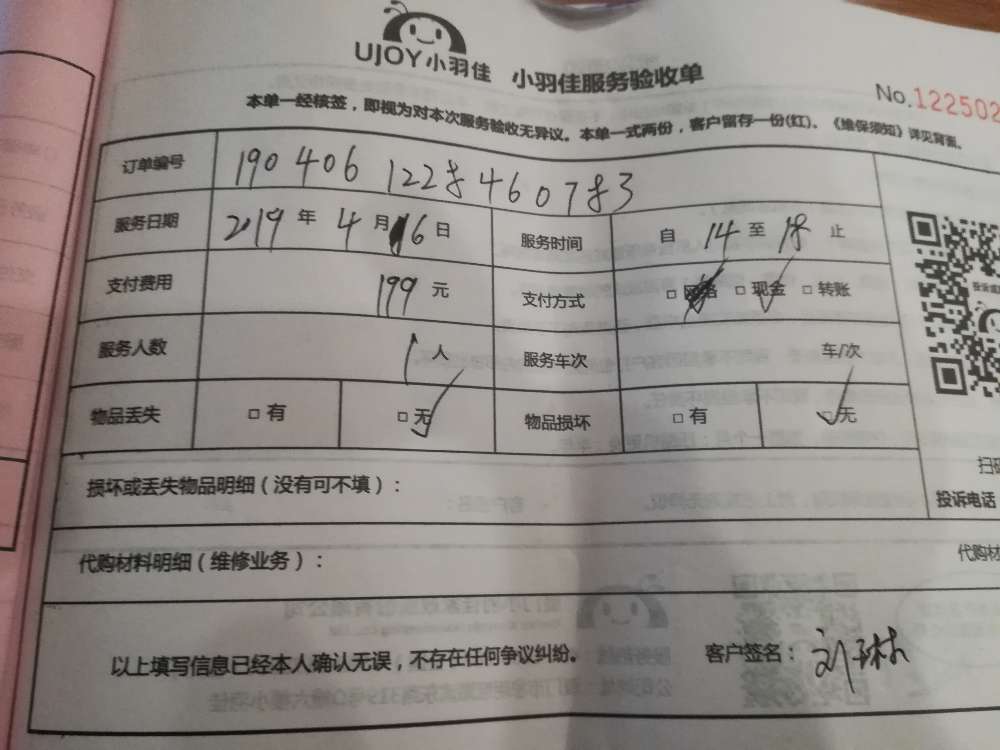 UJOY小羽佳 小羽佳服务验收单
No.122502
本单一经核签，即视为对本次服务验收无异议。本单一式两份，客户留存一份(红)。《维保须知》详见背面。
订单编号 1904061228460783
服务日期 2019 年 4 月 16 日 服务时间 自 14 至 18 止
支付费用 199 元 支付方式 □ 网络 □ 现金 □ 转账
服务人数 1 人 服务车次 车/次
物品丢失 □ 有 □ 无 物品损坏 □ 有 □ 无
损坏或丢失物品明细（没有可不填）：
扫码
投诉电话
代购材料明细（维修业务）：
代购材
以上填写信息已经本人确认无误，不存在任何争议纠纷。 客户签名：刘琳